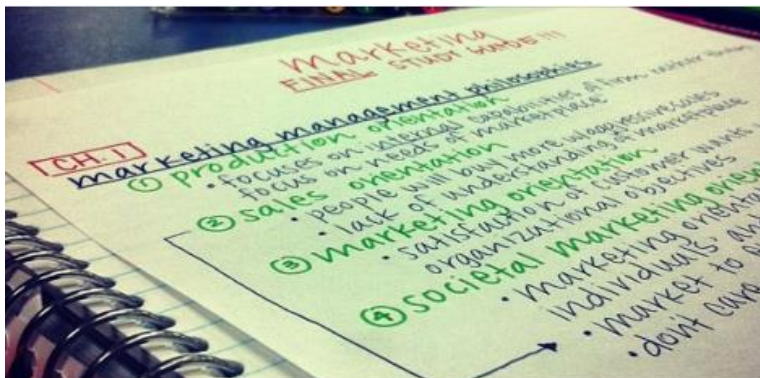 marketing
FINAL STUDY GUIDE!!!
CH. 1
marketing management philosophies
① production orientation
• focuses on internal capabilities of firm rather than
focus on needs of marketplace
② sales orientation
• people will buy more w/aggressive sales
• lack of understanding of marketplace
③ marketing orientation
• satisfaction of customer wants
organizational objectives
④ societal marketing
• marketing
individuals
• market to
• don't care